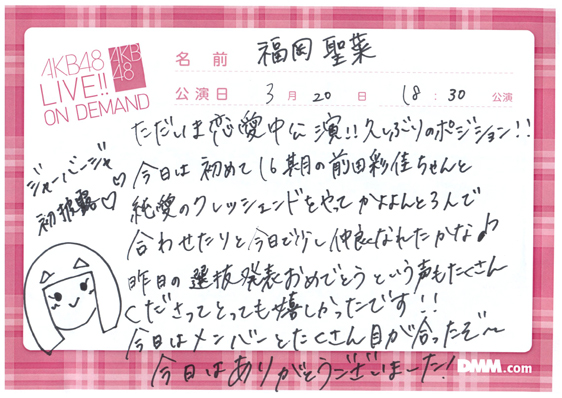 AKB48
LIVE!!
ON DEMAND
AKB
48
名前 福岡 聖菜
公演日 3月20日 18:30 公演
ただいま恋愛中公演!! 久しぶりのポジション!!
ジャーバージャ
初披露♡♡
今日は初めて16期の前田彩佳ちゃんと
純愛のクレッシェンドをやって かよよんと3人で
合わせたりと今日で少し仲良くなれたかな♪
昨日の選抜発表おめでとうという声もたくさん
くださってとっても嬉しかったです!!
今日はメンバーとたくさん目が合ったぞ〜
今日はありがとうございました!
DMM.com